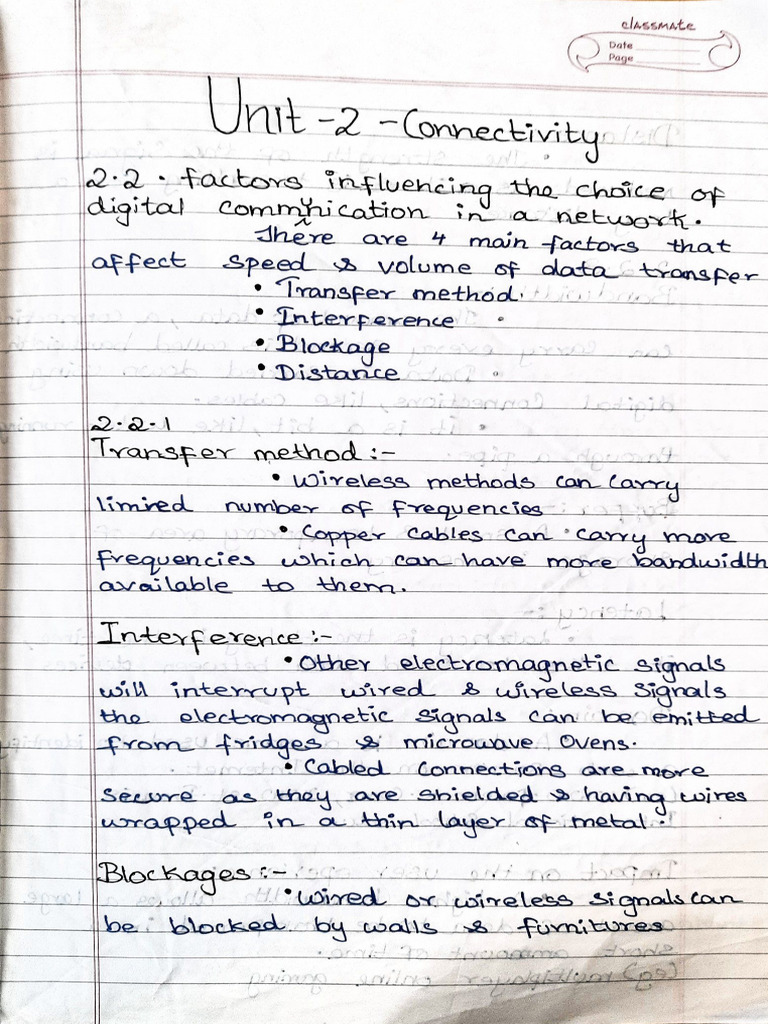 classmate
Date
Page
Unit - 2 - Connectivity
2.2. factors influencing the choice of
digital communication in a network.
There are 4 main factors that
affect speed & volume of data transfer
• Transfer method.
• Interference
• Blockage
• Distance
2.2.1
Transfer method :-
• Wireless methods can carry
limired number of frequencies
• Copper cables can carry more
frequencies which can have more bandwidth
available to them.
Interference :-
• Other electromagnetic signals
will interrupt wired & wireless signals
the electromagnetic signals can be emitted
from fridges & microwave ovens.
• Cabled connections are more
secure as they are shielded & having wires
wrapped in a thin layer of metal.
Blockages :-
• Wired or wireless signals can
be blocked by walls & furnitures